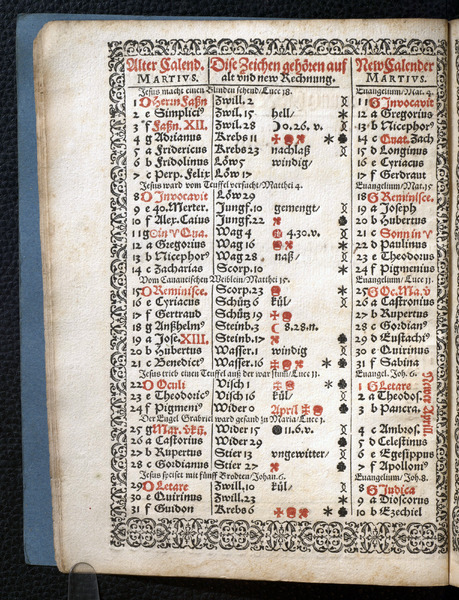 Alter Calend. Dise Zeichen gehören auf New Calender
MARTIVS. alt vnd new Rechnung. MARTIVS.
Jesus macht einen Blinden sehend/Luce 18. Euangelium/Mat. 4.
1 D Herin Faßn Zwill. 2 11 G Invocavit
2 e Simplici⁹ Zwill. 15 hell/ 12 a Gregorius
3 f Faßn. XII. Zwil. 28 ☽ 0.26. v. 13 b Nicephor⁹
4 g Adrianus Krebs 11 14 c Quat. Zach
5 a Fridericus Krebs 23 nachlaß 15 D Longinus
6 b Fridolinus Löw 5 windig/ 16 e Cyriacus
7 c Perp. Felix Löw 17 17 f Gerdraut
Jesus ward vom Teuffel versucht/Matthei 4. Euangelium/Mat. 15
8 D Invocavit Löw 29 18 G Reminisce.
9 e 40. Merter. Jungf. 10 gemengt/ 19 a Joseph
10 f Alex. Caius Jungf. 22 20 b Hubertus
11 g ☉ in ♈ Qua. Wag 4 4.30. v. 21 c Sonn in ♈
12 a Gregorius Wag 16 22 D Paulinus
13 b Nicephor⁹ Wag 28 naß/ 23 e Theodorus
14 c Zacharias Scorp. 10 24 f Pigmenius
Vom Cananeischen Weiblein/Matthei 15. Euangelium/Luce 11
15 D Reminisce. Scorp. 23 25 G Oc. Ma. v
16 e Cyriacus Schütz 6 kül/ 26 a Castorius
17 f Gertraud Schütz 19 27 b Rupertus
18 g Anßhelm⁹ Steinb. 3 ☾ 8.28. n. 28 c Gordian⁹
19 a Jose. XIII. Steinb. 17 29 D Eustachi⁹
20 b Hubertus Wasser. 1 windig 30 e Quirinus
21 c Benedict⁹ Wasser. 16 31 f Sabina
Jesus trieb einen Teuffel auß der war stum/Luce 11. Euangel. Joh. 6.
22 D Oculi Visch 1 1 G Letare
23 e Theodoric⁹ Visch 16 kül/ 2 a Theodos.
24 f Pigmeni⁹ Wider 0 April 3 b Pancra.
Der Engel Gabriel ward gesand zu Maria/Luce 1.
25 g Mar. Vkü. Wider 15 11.6. v. 4 c Ambros.
26 a Castorius Wider 29 5 D Celestinus
27 b Rupertus Stier 13 vngewitter/ 6 e Egesippus
28 c Gordianus Stier 27 7 f Apolloni⁹
Jesus speiset mit fünff Brodten/Johan. 6. Euangelium/Joh. 8.
29 D Letare Zwill. 10 kül/ 8 G Judica
30 e Quirinus Zwill. 23 9 a Dioscorus
31 f Guidon Krebs 6 10 b Ezechiel